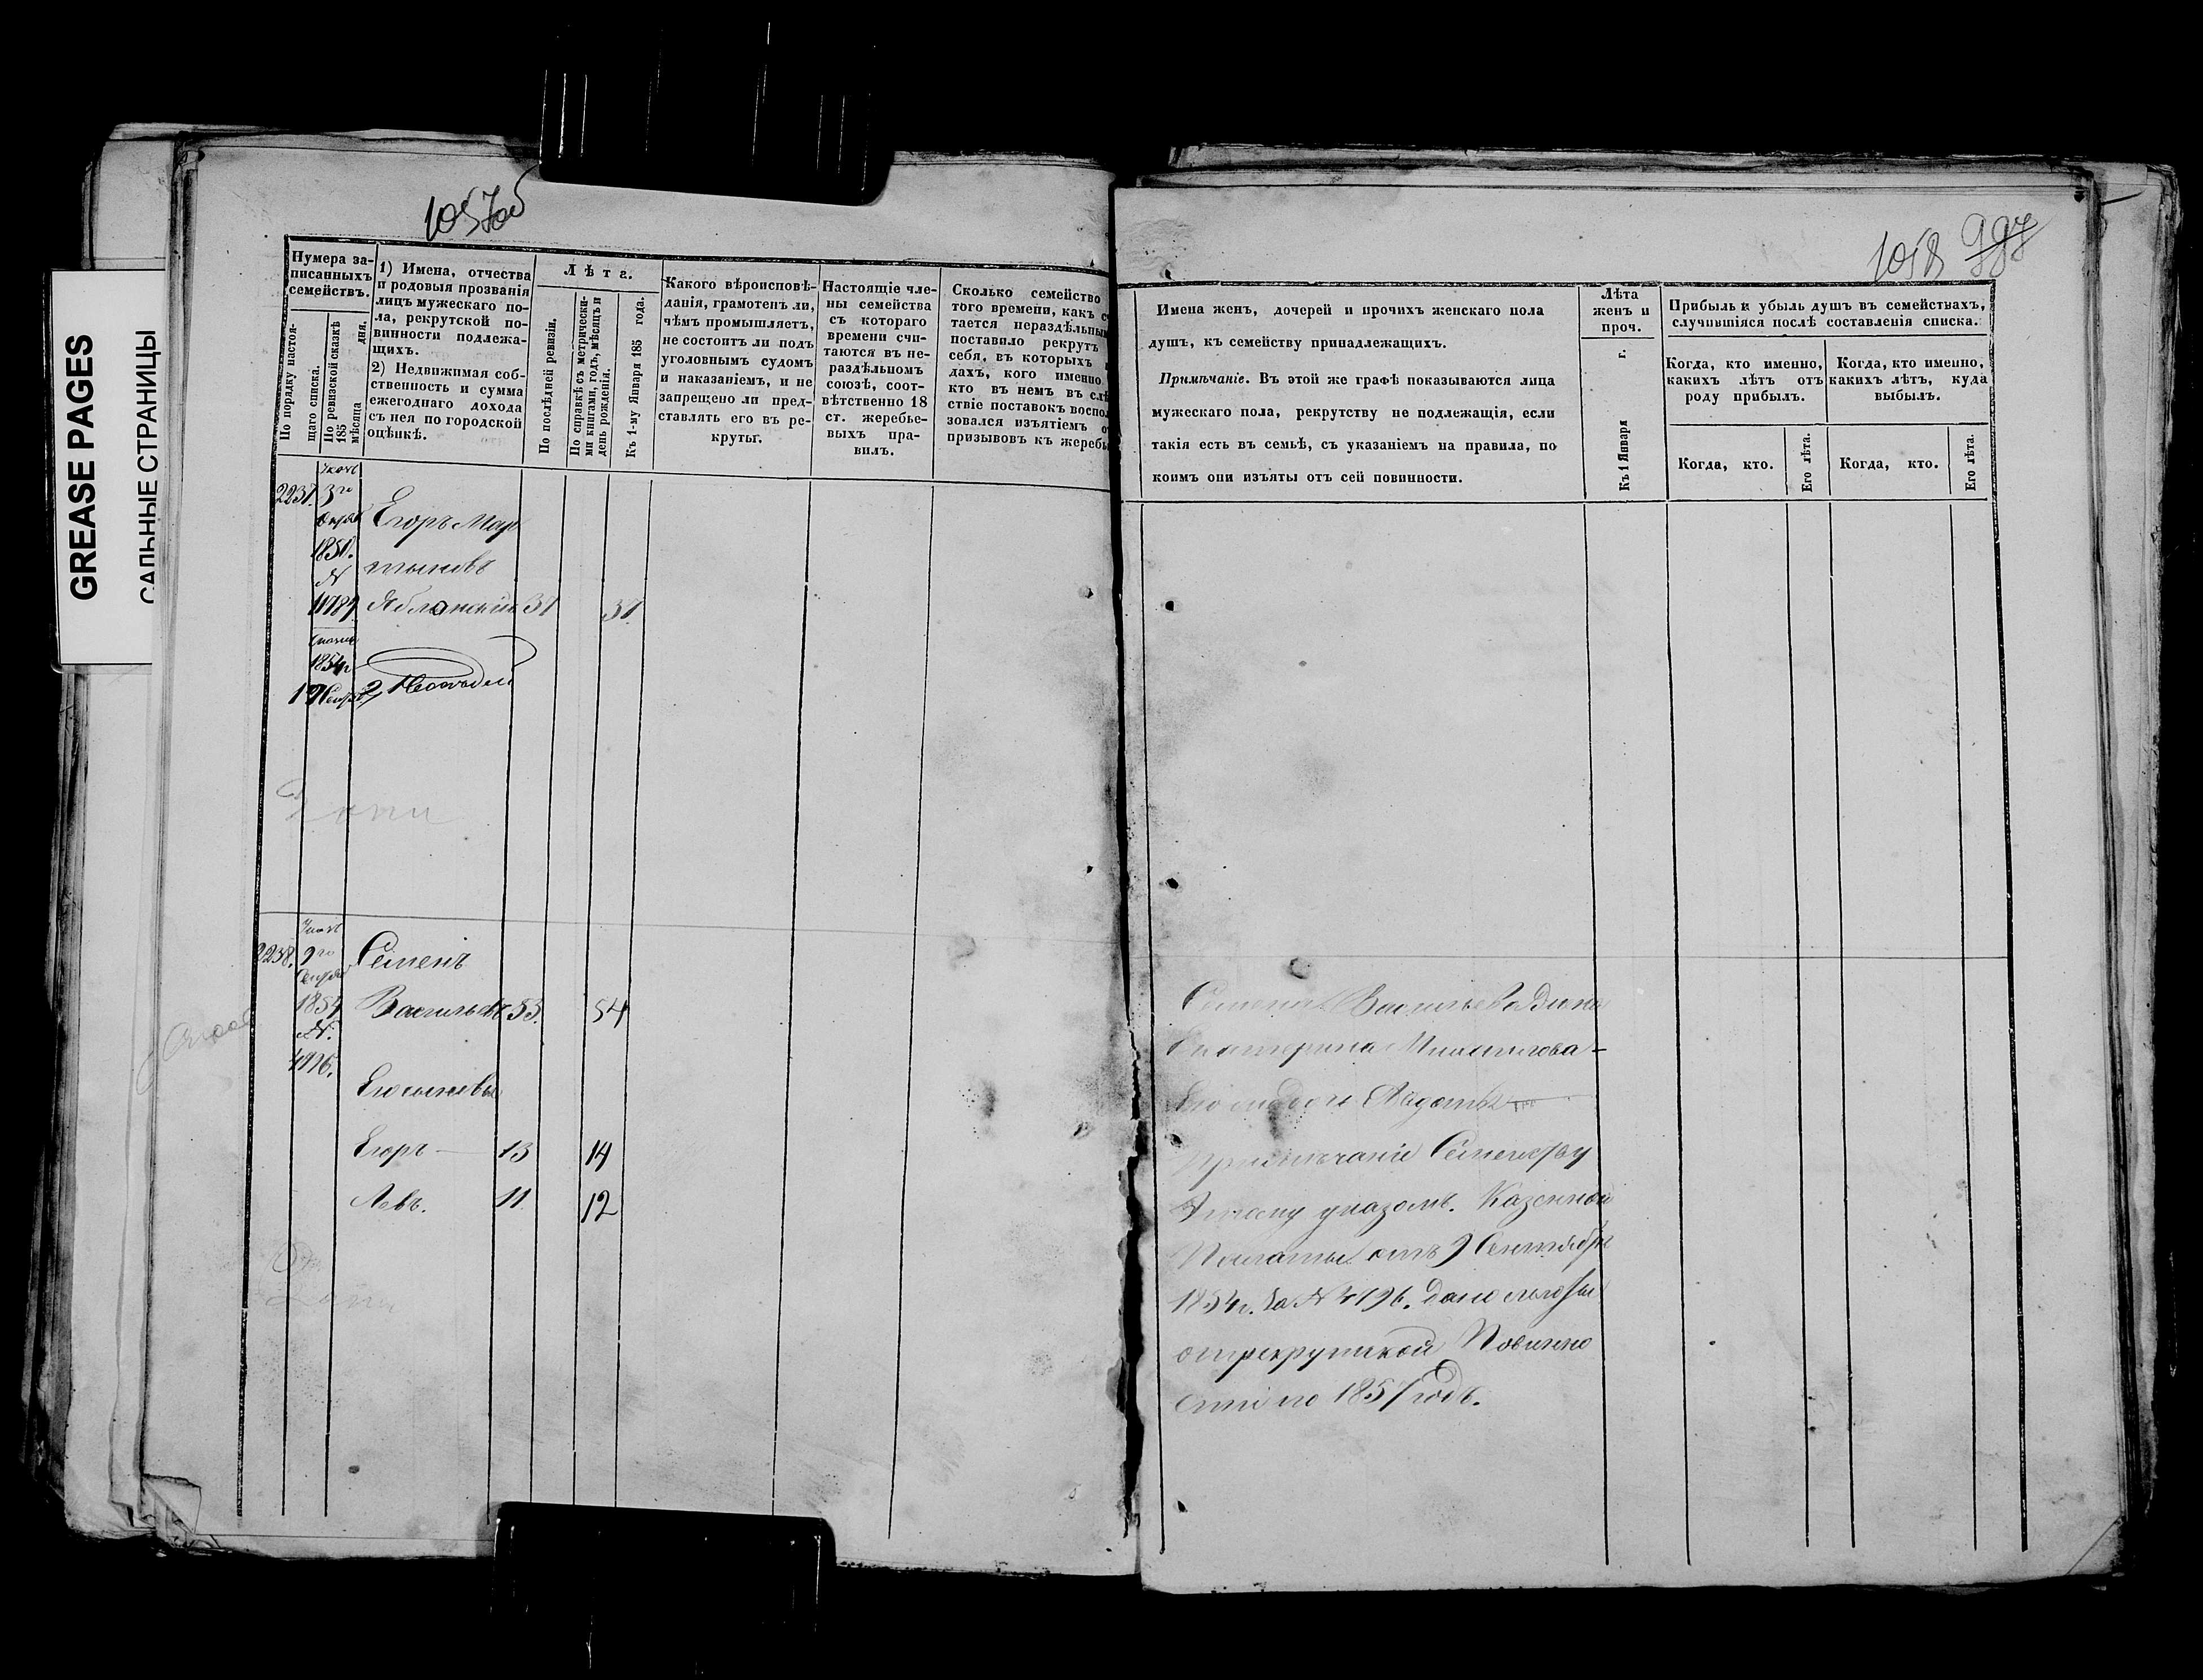 GREASE PAGES
САЛЬНЫЕ СТРАНИЦЫ
1057об
Нумера за-
писанныхъ
семействъ.
По порядку настоя-
щаго списка.
По ревизской сказкѣ
185
мѣсяца дня.
1) Имена, отчества
и родовыя прозванія
лицъ мужескаго по-
ла, рекрутской по-
винности подлежа-
щихъ.
2) Недвижимая соб-
ственность и сумма
ежегоднаго дохода
съ нея по городской
оцѣнкѣ.
Лѣта.
По послѣдней ревизіи.
По справкѣ съ метрически-
ми книгами, годъ, мѣсяцъ и
день рожденія.
Къ 1-му Января 185 года.
Какого вѣроисповѣ-
данія, грамотенъ ли,
чѣмъ промышляетъ,
не состоитъ ли подъ
уголовнымъ судомъ
и наказаніемъ, и не
запрещено ли пред-
ставлять его въ ре-
круты.
Настоящіе чле-
ны семейства
съ котораго
времени счи-
таются въ не-
раздѣльномъ
союзѣ, соот-
вѣтственно 18
ст. жеребье-
выхъ пра-
вилъ.
Сколько семейство
того времени, какъ
тается нераздѣльнымъ
поставило рекрутъ
себя, въ которыхъ
дахъ, кого именно
кто въ немъ въ слѣд
ствіе поставокъ воспол
зовался изъятіемъ
призывовъ къ жеребью
2237. 3го
Егоръ Мар
1850.
№
тыновъ
11789 Яблонскій 37 37
1854г
2238. 9го Семенъ
1854 Васильевъ 53. 54
№
4196.
Его сыновья
Егоръ 13 14
Левъ. 11 12
1058 997
Имена женъ, дочерей и прочихъ женскаго пола
душъ, къ семейству принадлежащихъ.
Примѣчаніе. Въ этой же графѣ показываются лица
мужескаго пола, рекрутству не подлежащія, если
такія есть въ семьѣ, съ указаніемъ на правила, по
коимъ они изъяты отъ сей повинности.
Лѣта
женъ и
проч.
Къ 1 Января г.
Прибыль и убыль душъ въ семействахъ,
случившіяся послѣ составленія списка.
Когда, кто именно,
какихъ лѣтъ отъ
роду прибылъ.
Когда, кто именно,
какихъ лѣтъ, куда
выбылъ.
Когда, кто.
Его лѣта.
Когда, кто.
Его лѣта.
Семена Васильева жена
Екатерина Михайлова
Примѣчаніе
указомъ. Казенной
Палаты отъ 9 Сентября
1854г. за № 4196. дано льготы
отрекрутской Повинно
сти по 1857 годъ.